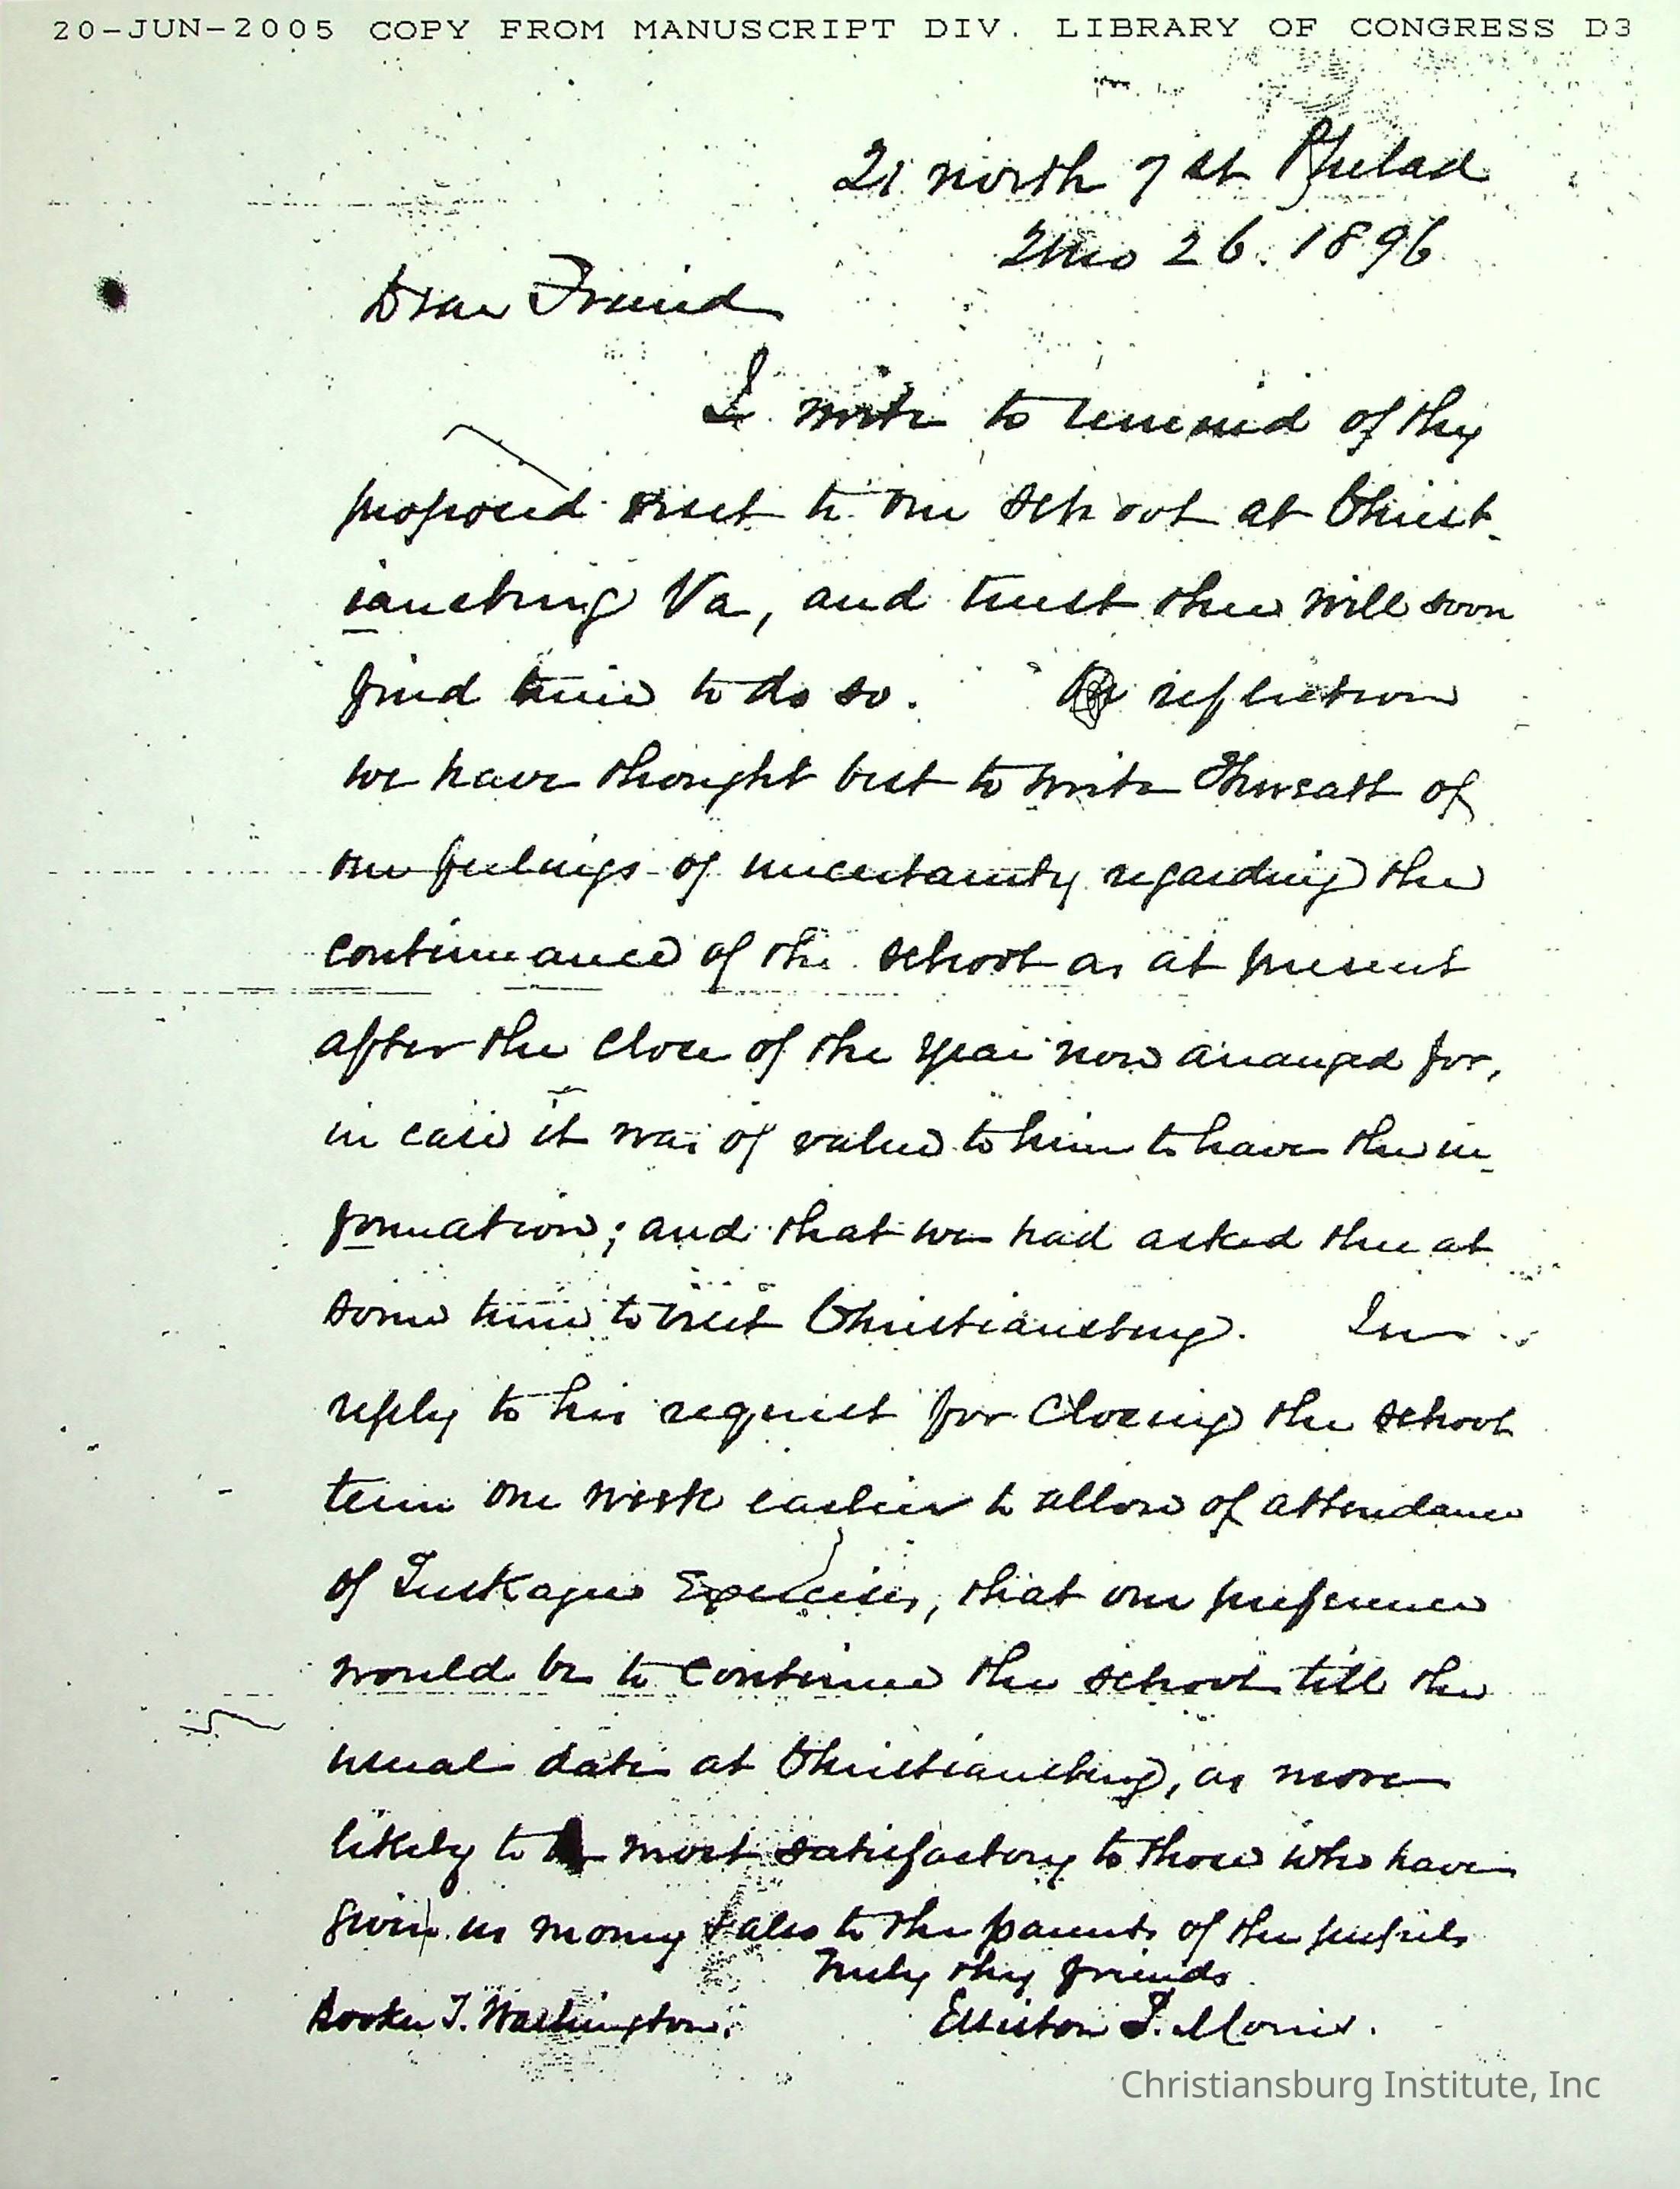 20-JUN-2005 COPY FROM MANUSCRIPT DIV. LIBRARY OF CONGRESS D3
21 north 7 st Philad
2mo 26. 1896
Dear Friend
I write to remind of thy
proposed visit to our school at Christ-
iansburg Va, and trust thee will soon
find time to do so. reflection
we have thought best to write of
our feelings of uncertainty regarding the
continuance of the school as at present
after the close of the year now arranged for,
in case it was of value to him to have the in-
formation; and that we had asked thee at
some time to visit Christiansburg. In
reply to his request for closing the school
term one week earlier to allow of attendance
of Tuskagee Exercises, that our preference
would be to continue the school till the
usual date at Christiansburg, as more
likely to be most satisfactory to those who have
given us money & also to the parents of the pupils
Truly thy friends
Booker T. Washington.
Elliston P. Morris.
Christiansburg Institute, Inc